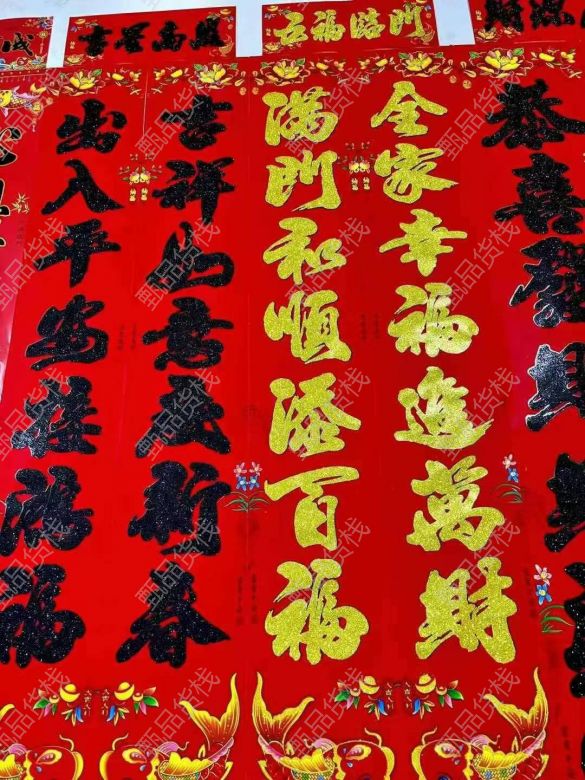 吉星高照
五福臨門
財源
恭喜發
全家幸福進萬財
滿門和順添百福
吉祥如意迎新春
出入平安接鴻福
甄品货栈